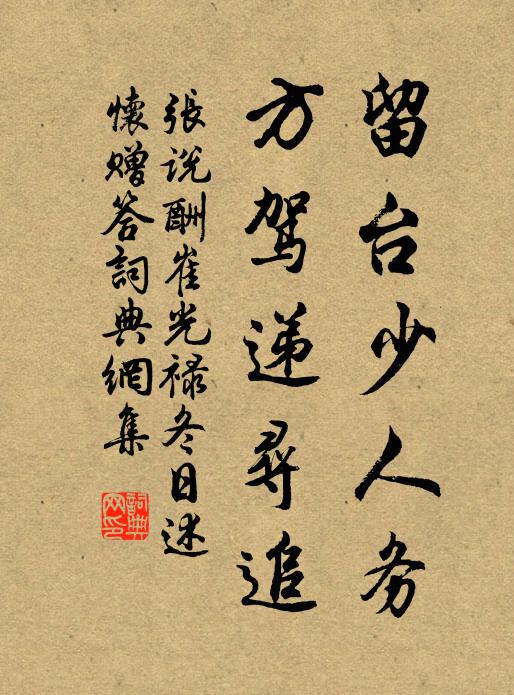 留台少人务
方驾递寻追
張說酬崔光禄冬日述
懷贈答詞典網集
詞典网印